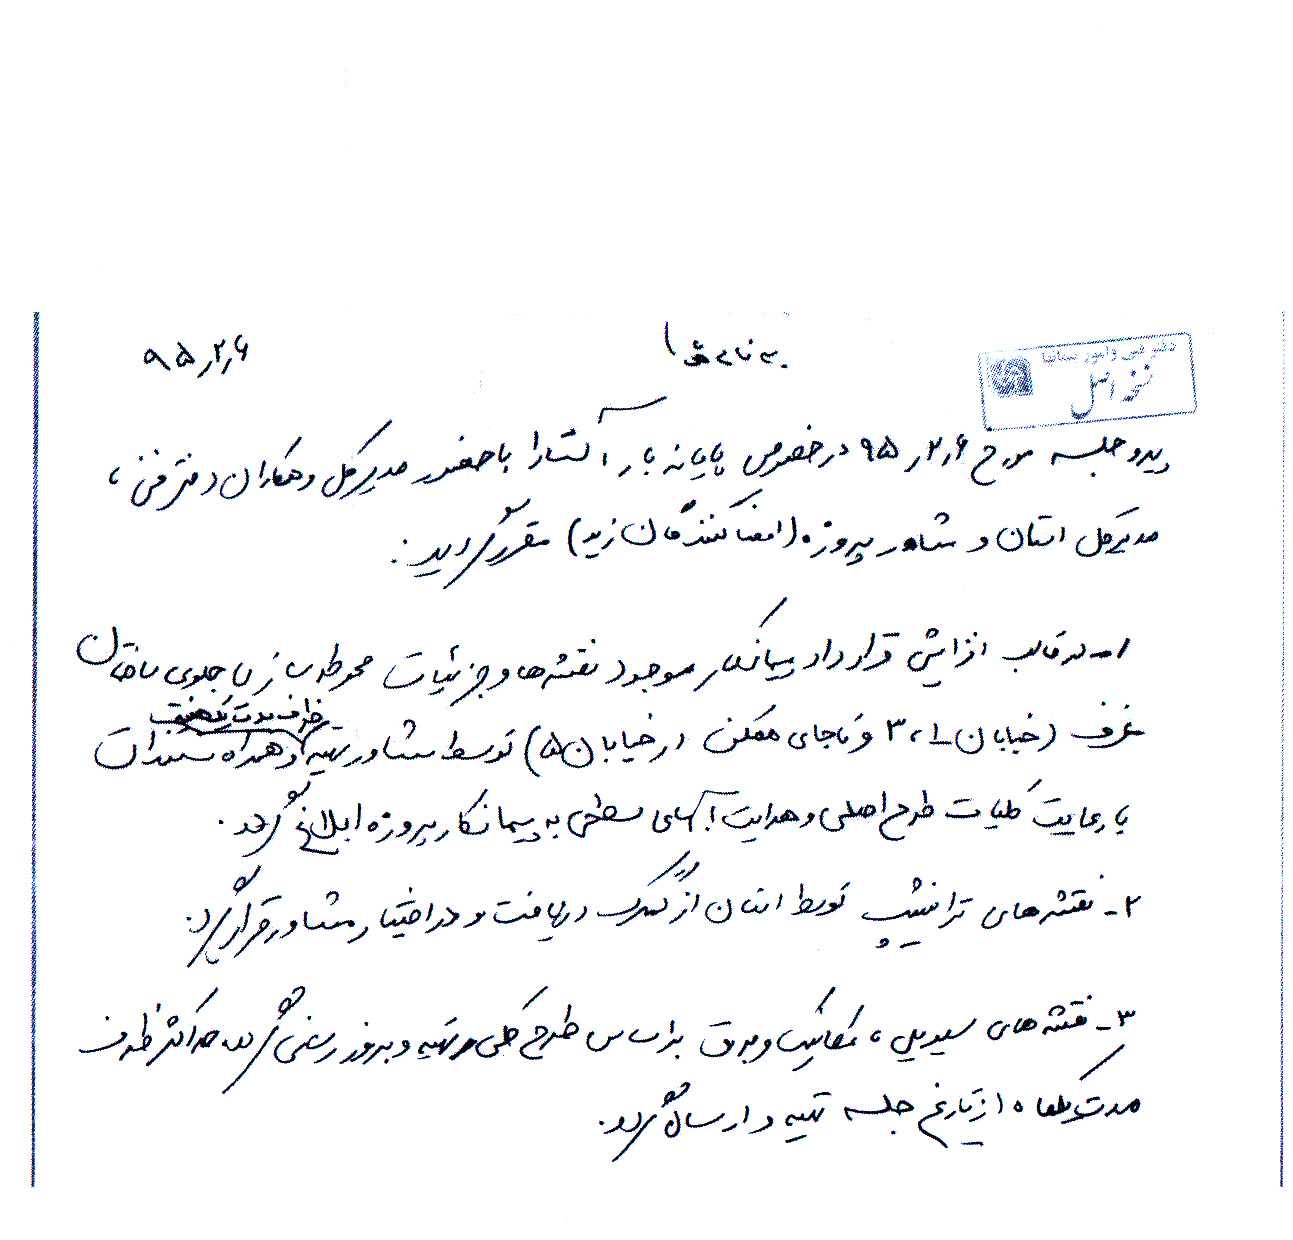 بنام خدا
۹۵٫۲٫۶
دفتر فنی و امور استانها
نسخه اصل
پیرو جلسه مورخ ۹۵٫۲٫۶ در خصوص پایانه بار آستارا با حضور مدیرکل و همکاران دفتر فنی ،
مدیرکل استان و مشاور پروژه (امضا کنندگان زیر) مقرر گردید :
۱- در قالب افزایش قرارداد پیمانکار موجود نقشه ها و جزئیات محوطه سازی جلوی ساختمان
ظرف مدت یک هفته
غرف (خیابان ۱، ۳ و تا جای ممکن در خیابان ۵) توسط مشاور تهیه و همراه مستندات
با رعایت کلیات طرح اصلی و هدایت آبهای سطحی به پیمانکار پروژه ابلاغ گردد.
۲- نقشه های ترانشیپ توسط استان از گمرک دریافت و در اختیار مشاور قرار گیرد.
۳- نقشه های سیویل ، مکانیک و برق بر اساس طرح کلی تهیه و بروز رسانی گردد حداکثر ظرف
مدت یکماه از تاریخ جلسه تهیه و ارسال گردد.